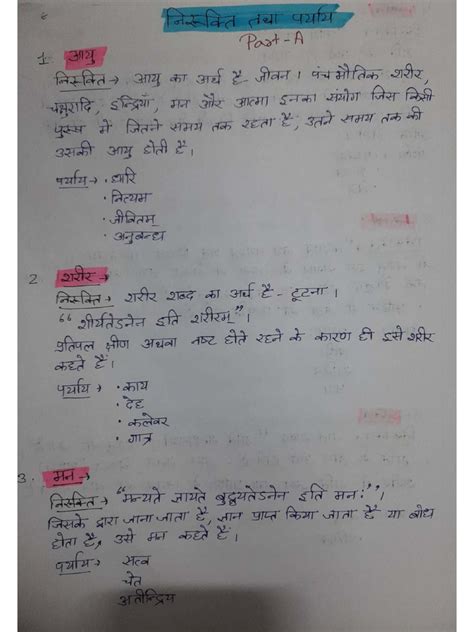 निरूक्ति तथा पर्याय
Part-A
1. आयु
निरूक्ति → आयु का अर्थ है - जीवन । पंचभौतिक शरीर,
चक्षुरादि, इन्द्रियाँ, मन और आत्मा इनका संयोग जिस किसी
पुरूष में जितने समय तक रहता है, उतने समय तक की
उसकी आयु होती है ।
पर्याय → · धारि
· नित्यम
· जीवितम्
· अनुबन्ध
2. शरीर →
निरूक्ति → शरीर शब्द का अर्थ है - टूटना ।
“शीर्यतेऽनेन इति शरीरम्” ।
प्रतिपल क्षीण अथवा नष्ट होते रहने के कारण ही इसे शरीर
कहते हैं ।
पर्याय → · काय
· देह
· कलेवर
· गात्र
3. मन →
निरूक्ति → “मन्यते ज्ञायते बुद्ध्यतेऽनेन इति मनः” ।
जिसके द्वारा जाना जाता है, ज्ञान प्राप्त किया जाता है या बोध
होता है, उसे मन कहते हैं ।
पर्याय → सत्व
चेत
अतीन्द्रिय